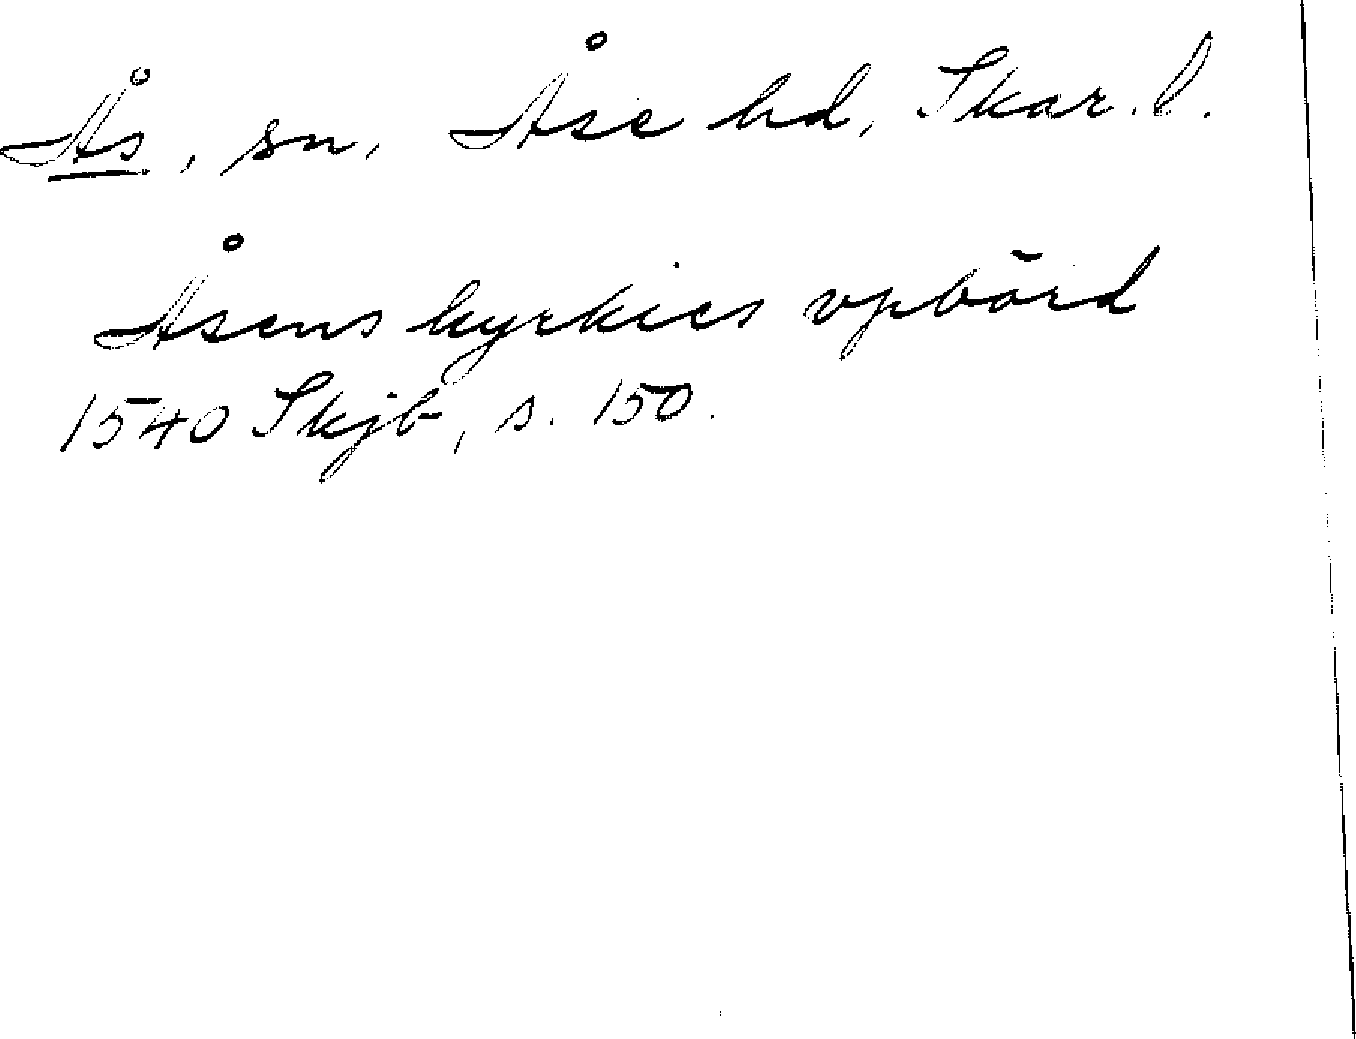 Ås, sn, Åse hd, Skar. l.
Åsens kyrkies vpbörd
1540 Skjb, s. 150.